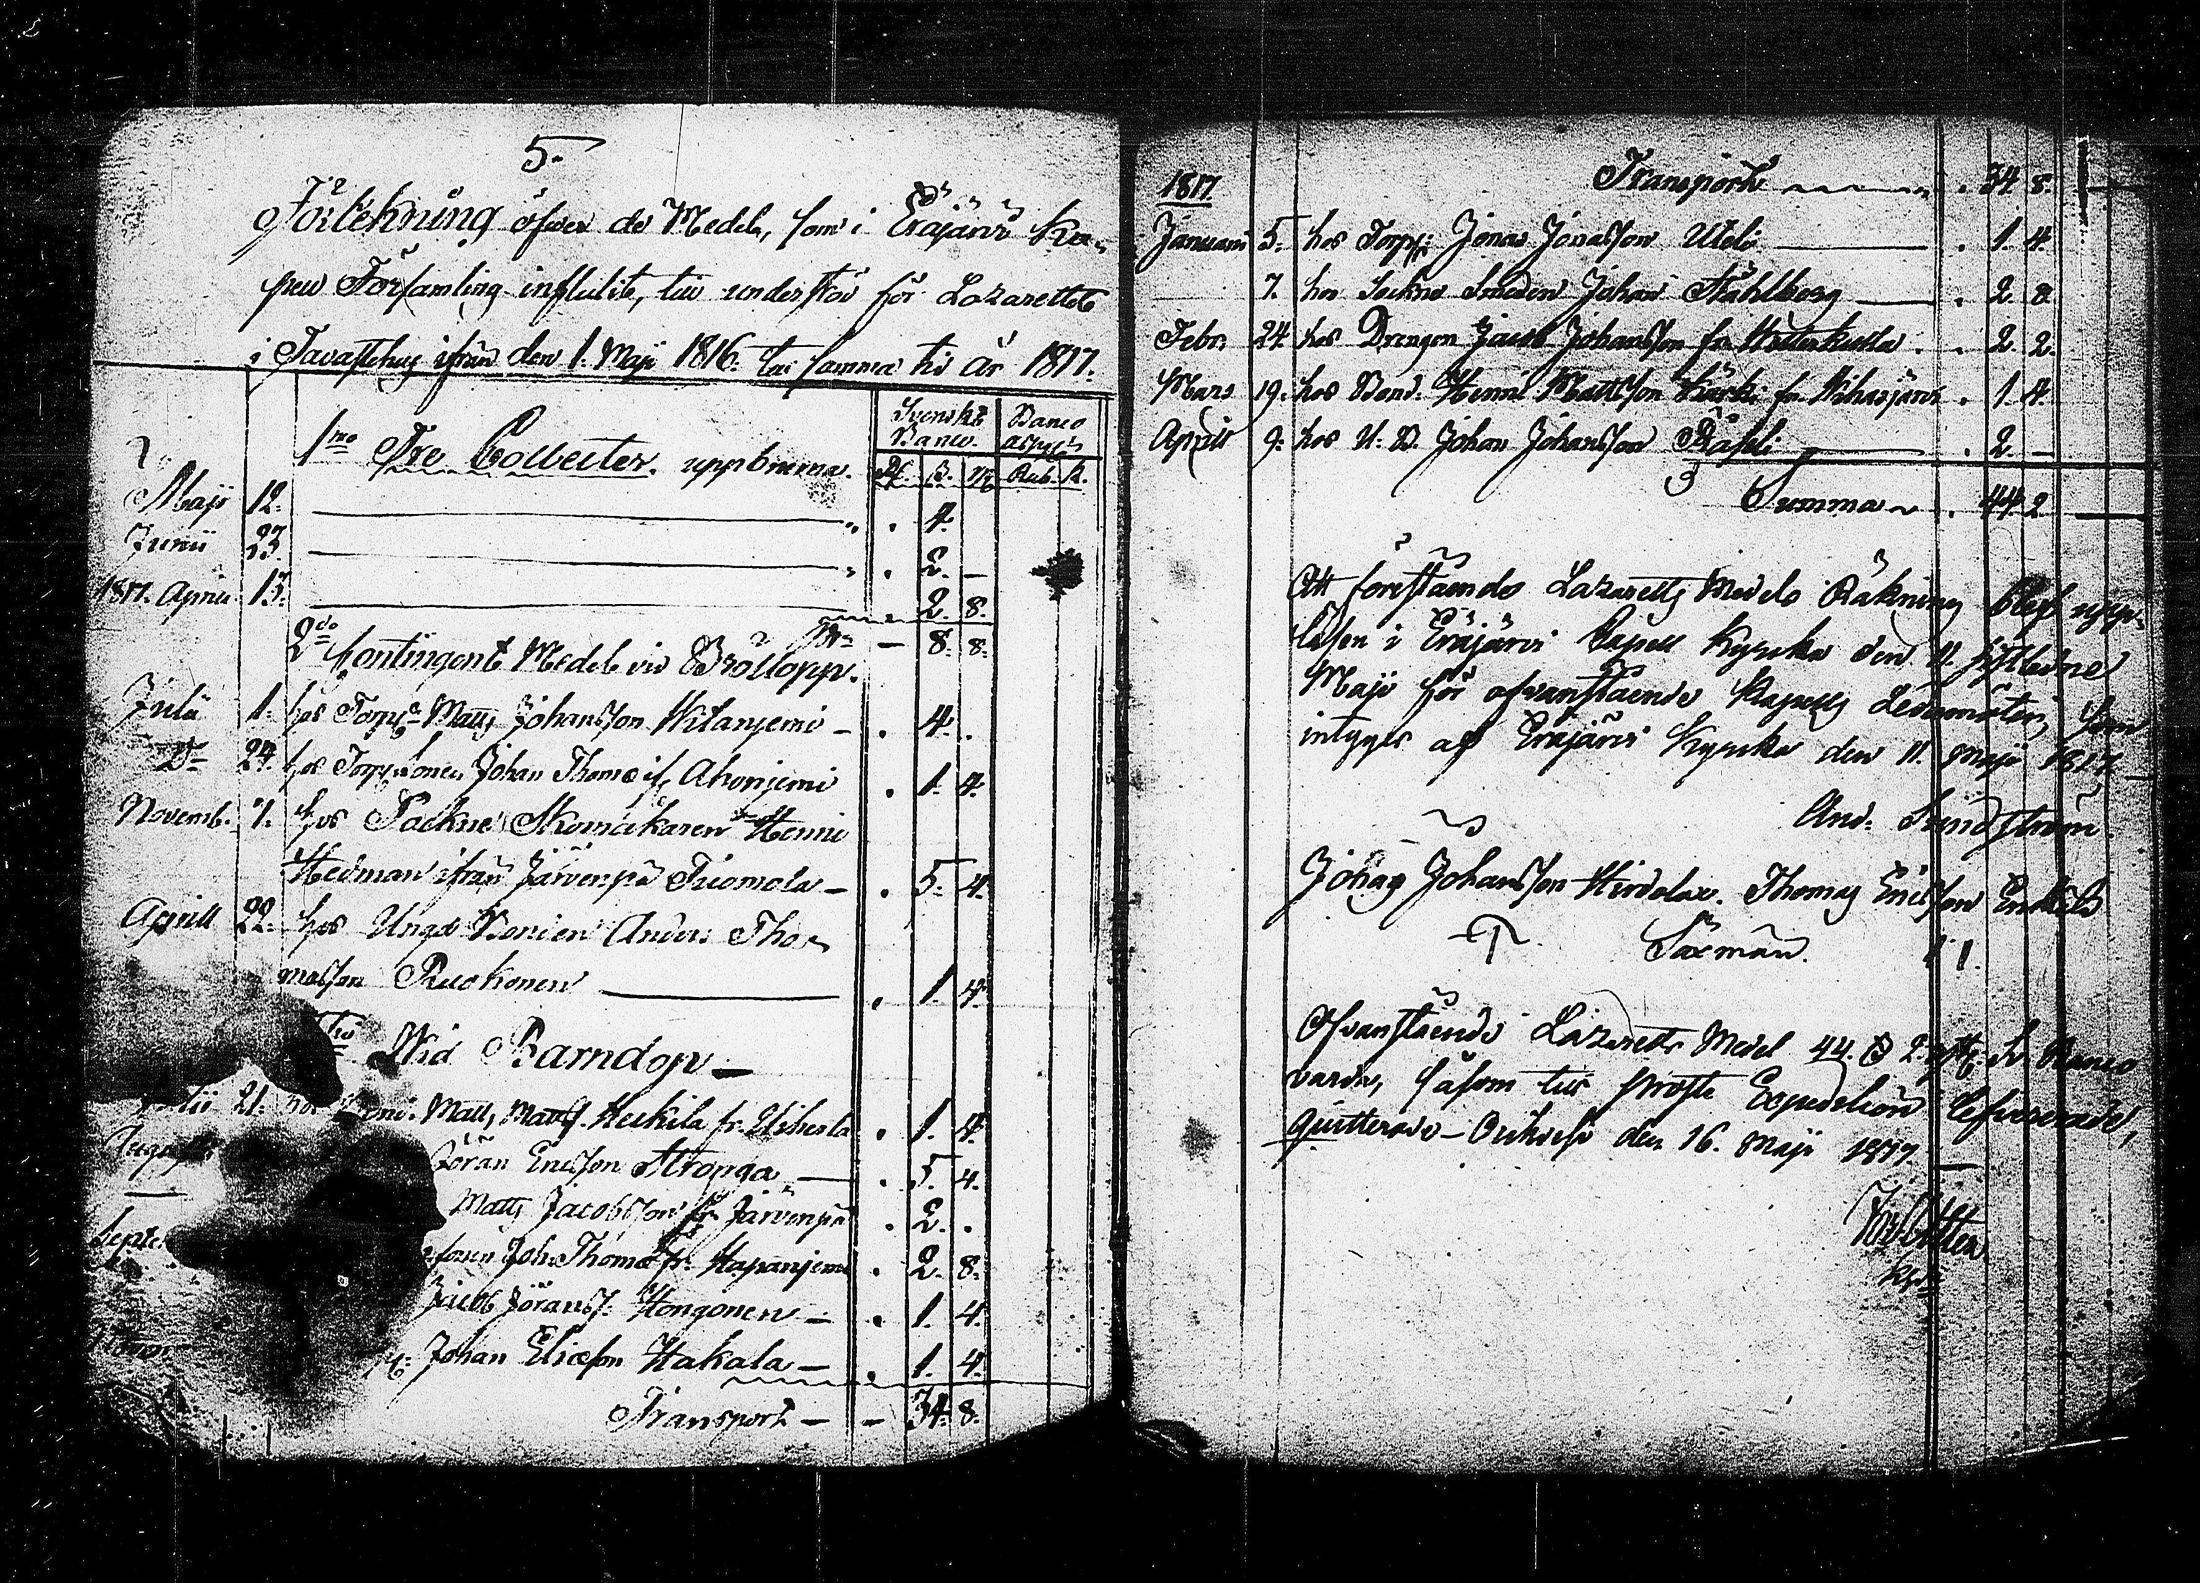 5.
Förtekning öfwer de Medel, som i Eräjärvi Ka-
pell Församling influtit, till underståd för Lazarettet
i Tavastehus ifrån den 1. Maji 1816. till samma tid år 1817.
1mo Tre Collecter. uppbrurna.
Svenskt Banco.
Banco assign:
Rd. ß. rst. Rub. K.
Maji 12. 4.
Junii 23. 2. —
1817. Aprill 13. 2. 8.
— 8. 8.
2do Contingent Medel vid Bröllopp.
Julii 1. hos Torp: Matts Johansson Kilanjemi — 4.
Do 24. hos Torp:Sonen Johan Thomæ if. Ahonjemi 1. 4.
Novemb. 1. hos Sockne Skomakaren Henric
Hedman ifrån Järvenpä Tuomola — 5. 4.
Aprill 22. hos Unge Bonden Anders Tho-
masson Ruokonen 1. 4.
Wid Barndop —
21. Matts Matts. Heikilä fr. Uiherla 1. 4.
August Jöran Ericsson Aronga — 5. 4.
Matts Jacobsson fr. Järvenpä 2.
Septe Joh: Thomæ fr. Hapanjemi 2. 8.
Jacob Jöranss. Hongonen — 1. 4.
Johan Ericsson Hakala — 1. 4.
Transport — — 34. 8.
1817. Transport 34. 8.
Januarii 5. hos Torp: Jonas Jonasson Uteli 1. 4.
7. hos Sockne Smeden Johan Ståhlberg 2. 8.
Febr. 24 hos Drengen Jacob Johansson fr. 2. 2.
Mars 19. hos Bond. Henric Mattsson Kärki fr. Vihasjärvi 1. 4.
Aprill 9. hos U. B. Johan Johansson Räfsli 2. —
Summa 44. 2
Att förestående Lazaretts Medels Räkning blef upp-
läsen i Eräjärvi Capell Kyrcka den 11. sistledne
Maji för ofvanstående Kapells Ledamöter, som
intygas af Eräjärvi Kyrcka den 11. Maji 1817 —
And: Lindström.
Johan Johansson Hirdelax. Thomas Ericsson Enkilä
Sexmän.
Ofvanstående Lazaretts Medel 44. ß 2. rst. Sv. Banco
varda, såsom till prosts Expedition lefvererade,
quitterade — Orihvesi den 16. Maji 1817. —